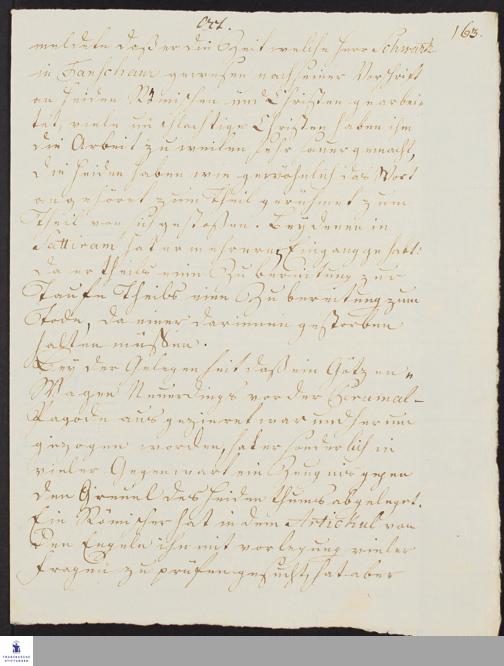 163.
meldete daß er die Zeit welche Herr Schwartz
in Tanschaur gewesen nach seiner Vorschrift
an Heiden Römischen und Christen gearbei-
tet, viele Christen haben ihm
die Arbeit zuweilen sehr sauer gemacht,
die Heiden haben wie gewöhnlich das Wort
angehöret zum Theil gerühmet zum
Theil von sich gestoßen. Bey denen in
Pattiram hat er mehreren Eingang gehabt:
da er theils eine Zubereitung zur
Taufe Theils eine Zubereitung zum
Tode, da einer darinnen gestorben
halten müssen.
Bey der Gelegenheit daß ein Götzen
Wagen Neuerdings vor der Perumal-
Pagode ausgezieret war und herum
gezogen worden, hat er sonderlich in
vieler Gegenwart ein Zeugnis gegen
den Greuel des Heidenthums abgeleget.
Ein Römischer hat in dem Artickul von
den Engeln ihn mit vorlegung vieler
Fragen zu prüfen gesucht, hat aber
FRANCKESCHE
STIFTUNGEN